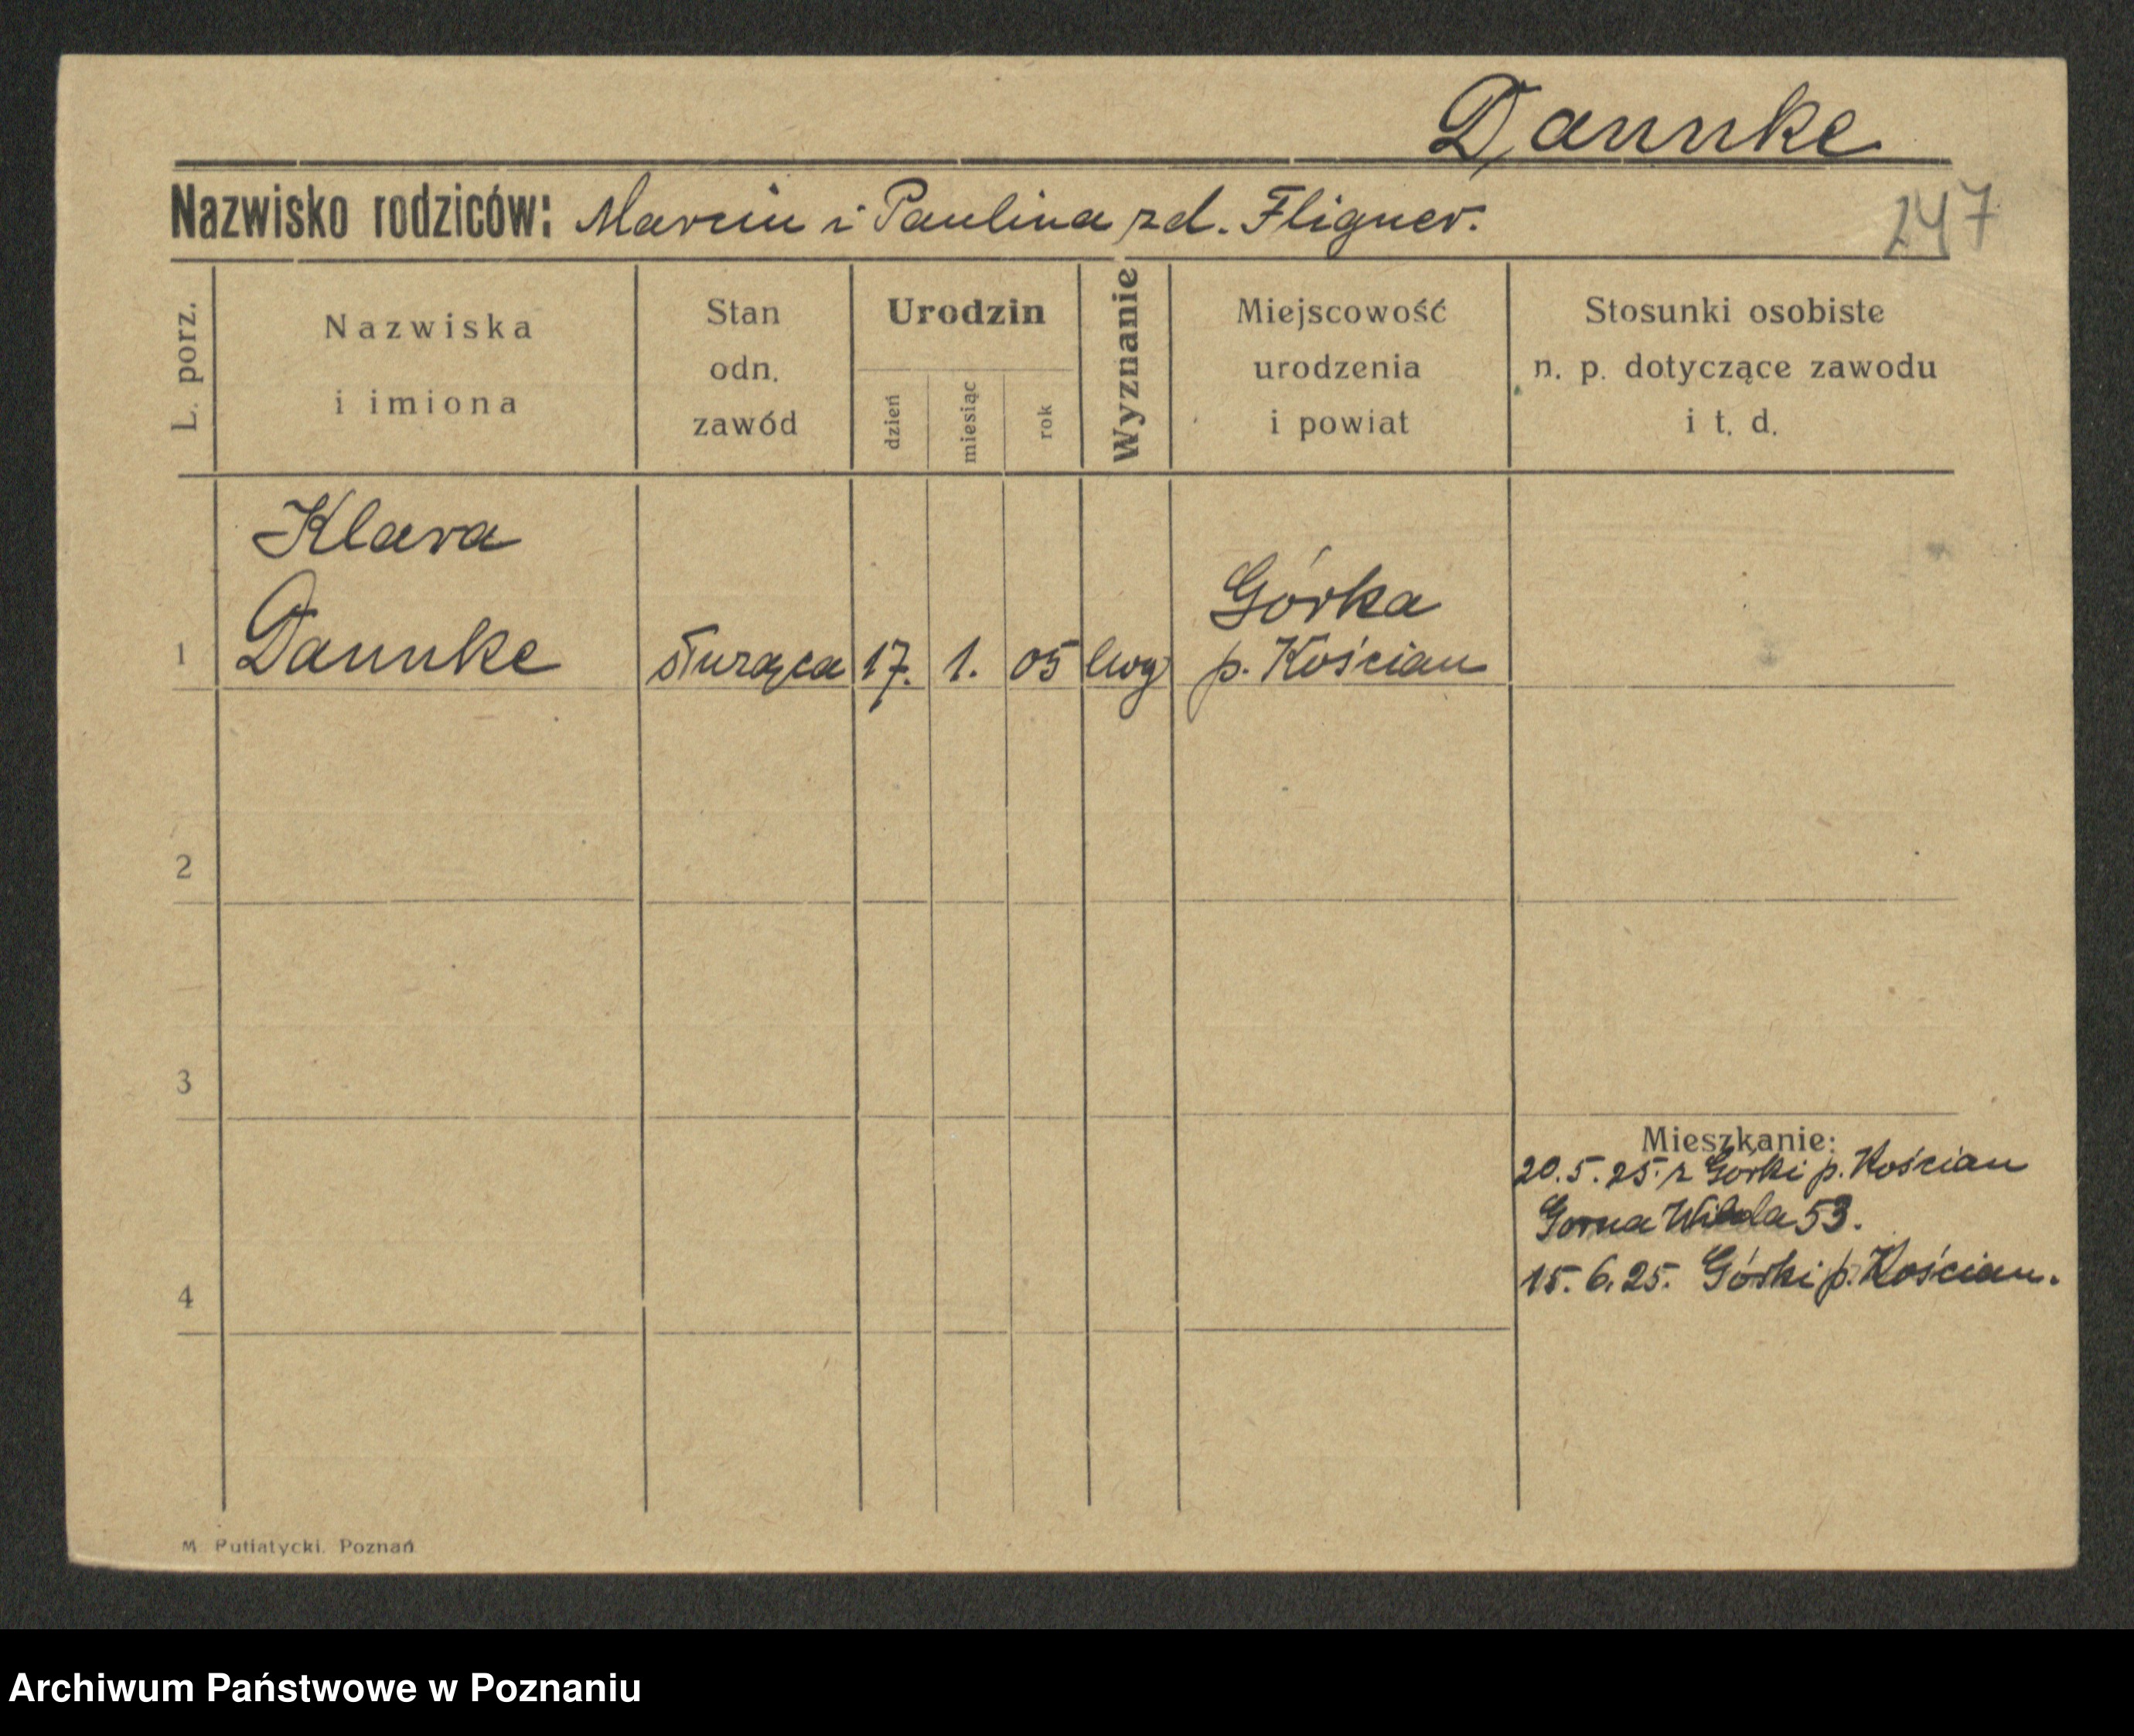 Dannke
Nazwisko rodziców: Marcin i Paulina zd. Fligner.
247
L. porz.
Nazwiska
i imiona
Stan
odn.
zawód
Urodzin
dzień
miesiąc
rok
Wyznanie
Miejscowość
urodzenia
i powiat
Stosunki osobiste
n. p. dotyczące zawodu
i t. d.
Klara
Górka
1 Dannke służąca 17. 1. 05 ewg p. Kościan
2
3
Mieszkanie:
20.5.25. z Górki p. Kościan
Gorna Wilda 53.
15.6.25. Górki p. Kościan.
4
M. Putiatycki. Poznań
Archiwum Państwowe w Poznaniu